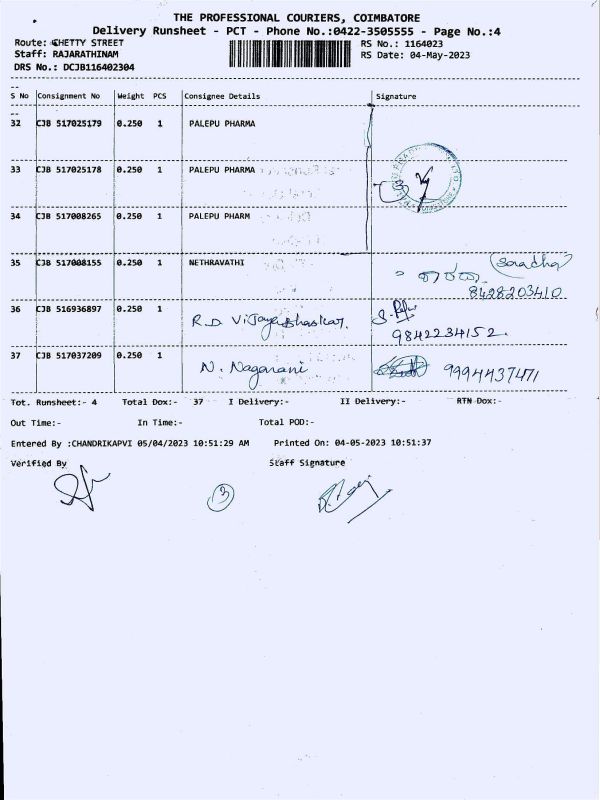 THE PROFESSIONAL COURIERS, COIMBATORE
Delivery Runsheet - PCT - Phone No.:0422-3505555 - Page No.:4
Route: CHETTY STREET RS No.: 1164023
Staff: RAJARATHINAM RS Date: 04-May-2023
DRS No.: DCJB116402304
S No Consignment No Weight PCS Consignee Details Signature
32 CJB 517025179 0.250 1 PALEPU PHARMA
33 CJB 517025178 0.250 1 PALEPU PHARMA
34 CJB 517008265 0.250 1 PALEPU PHARM
35 CJB 517008155 0.250 1 NETHRAVATHI
8428203410
36 CJB 516936897 0.250 1 R.D. Vijaya Bhaskar.
9842234152.
37 CJB 517037209 0.250 1 N. Nagarani 9994437471
Tot. Runsheet:- 4 Total Dox:- 37 I Delivery:- II Delivery:- RTN Dox:-
Out Time:- In Time:- Total POD:-
Entered By :CHANDRIKAPVI 05/04/2023 10:51:29 AM Printed On: 04-05-2023 10:51:37
Verified By Staff Signature
3